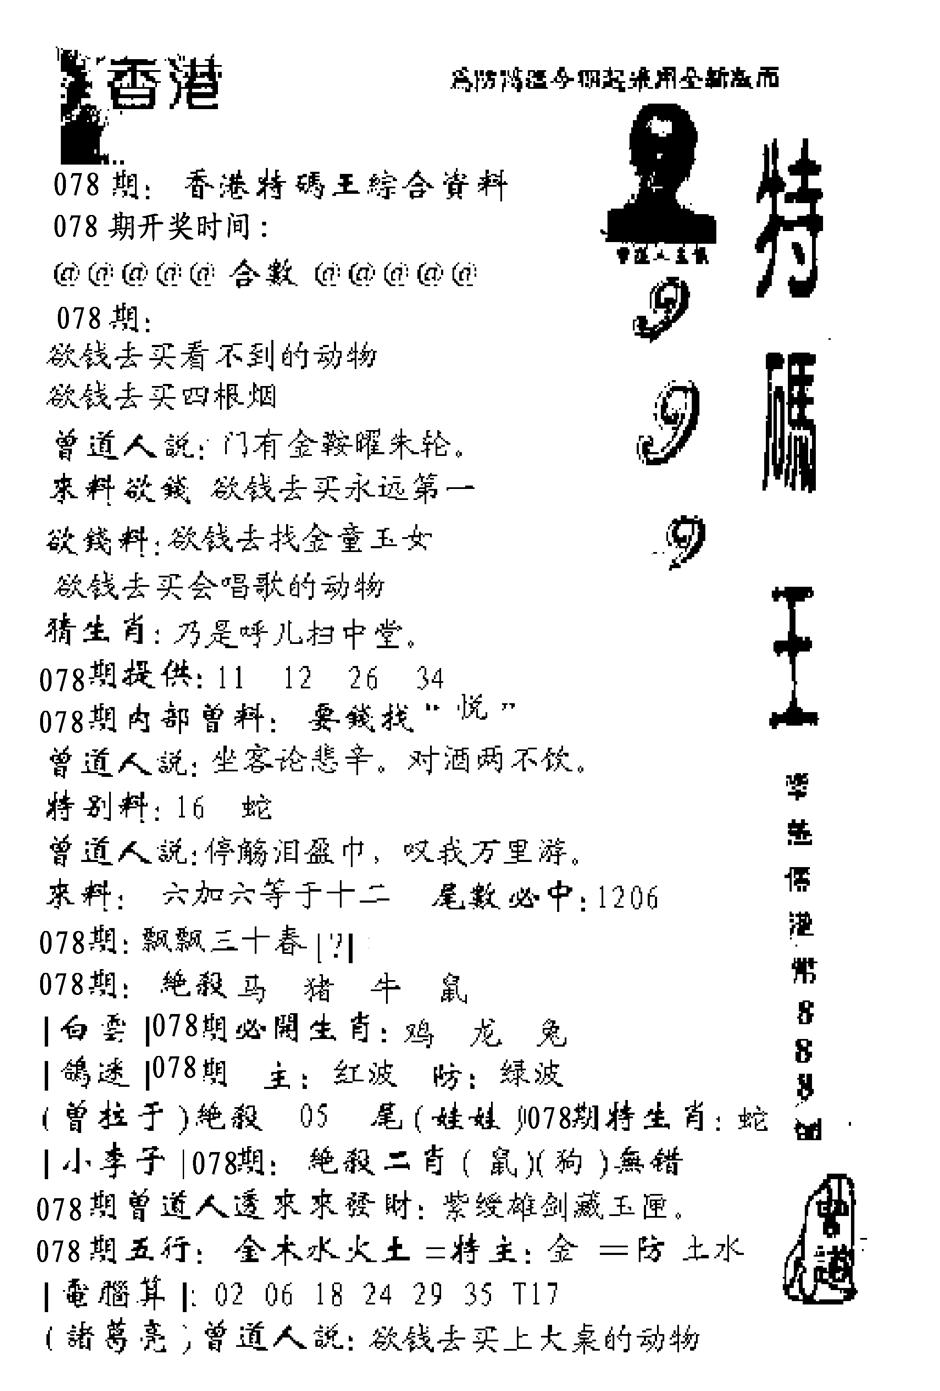 香港
為防海盜今期起采用全新版面
078期：香港特碼王綜合資料
078期开奖时间：
@@@@@合數@@@@@
078期：
欲钱去买看不到的动物
欲钱去买四根烟
曾道人説：门有金鞍曜朱轮。
來料欲錢 欲钱去买永远第一
欲錢料：欲钱去找金童玉女
欲钱去买会唱歌的动物
猜生肖：乃是呼儿扫中堂。
078期提供：11 12 26 34
078期内部曾料：要錢找“悦”
曾道人説：坐客论悲辛。对酒两不饮。
特别料：16 蛇
曾道人説：停觞泪盈巾，叹我万里游。
來料： 六加六等于十二 尾數必中：1206
078期：飘飘三十春|?|
078期：絶殺马 猪 牛 鼠
|白雲|078期必開生肖：鸡 龙 兔
|鴿迷|078期 主：红波 防：绿波
(曾拉于)絶殺 05 尾(娃娃)078期特生肖：蛇
|小李子|078期：絶殺二肖(鼠)(狗)無錯
078期曾道人透來來發財：紫绶雄剑藏玉匣。
078期五行：金木水火土=特主：金 =防 土水
|電腦算|：02 06 18 24 29 35 T17
(諸葛亮)曾道人説：欲钱去买上大桌的动物
曾道人主供
9
9
9
特
碼
王
港
幣
8
8
8
曾道